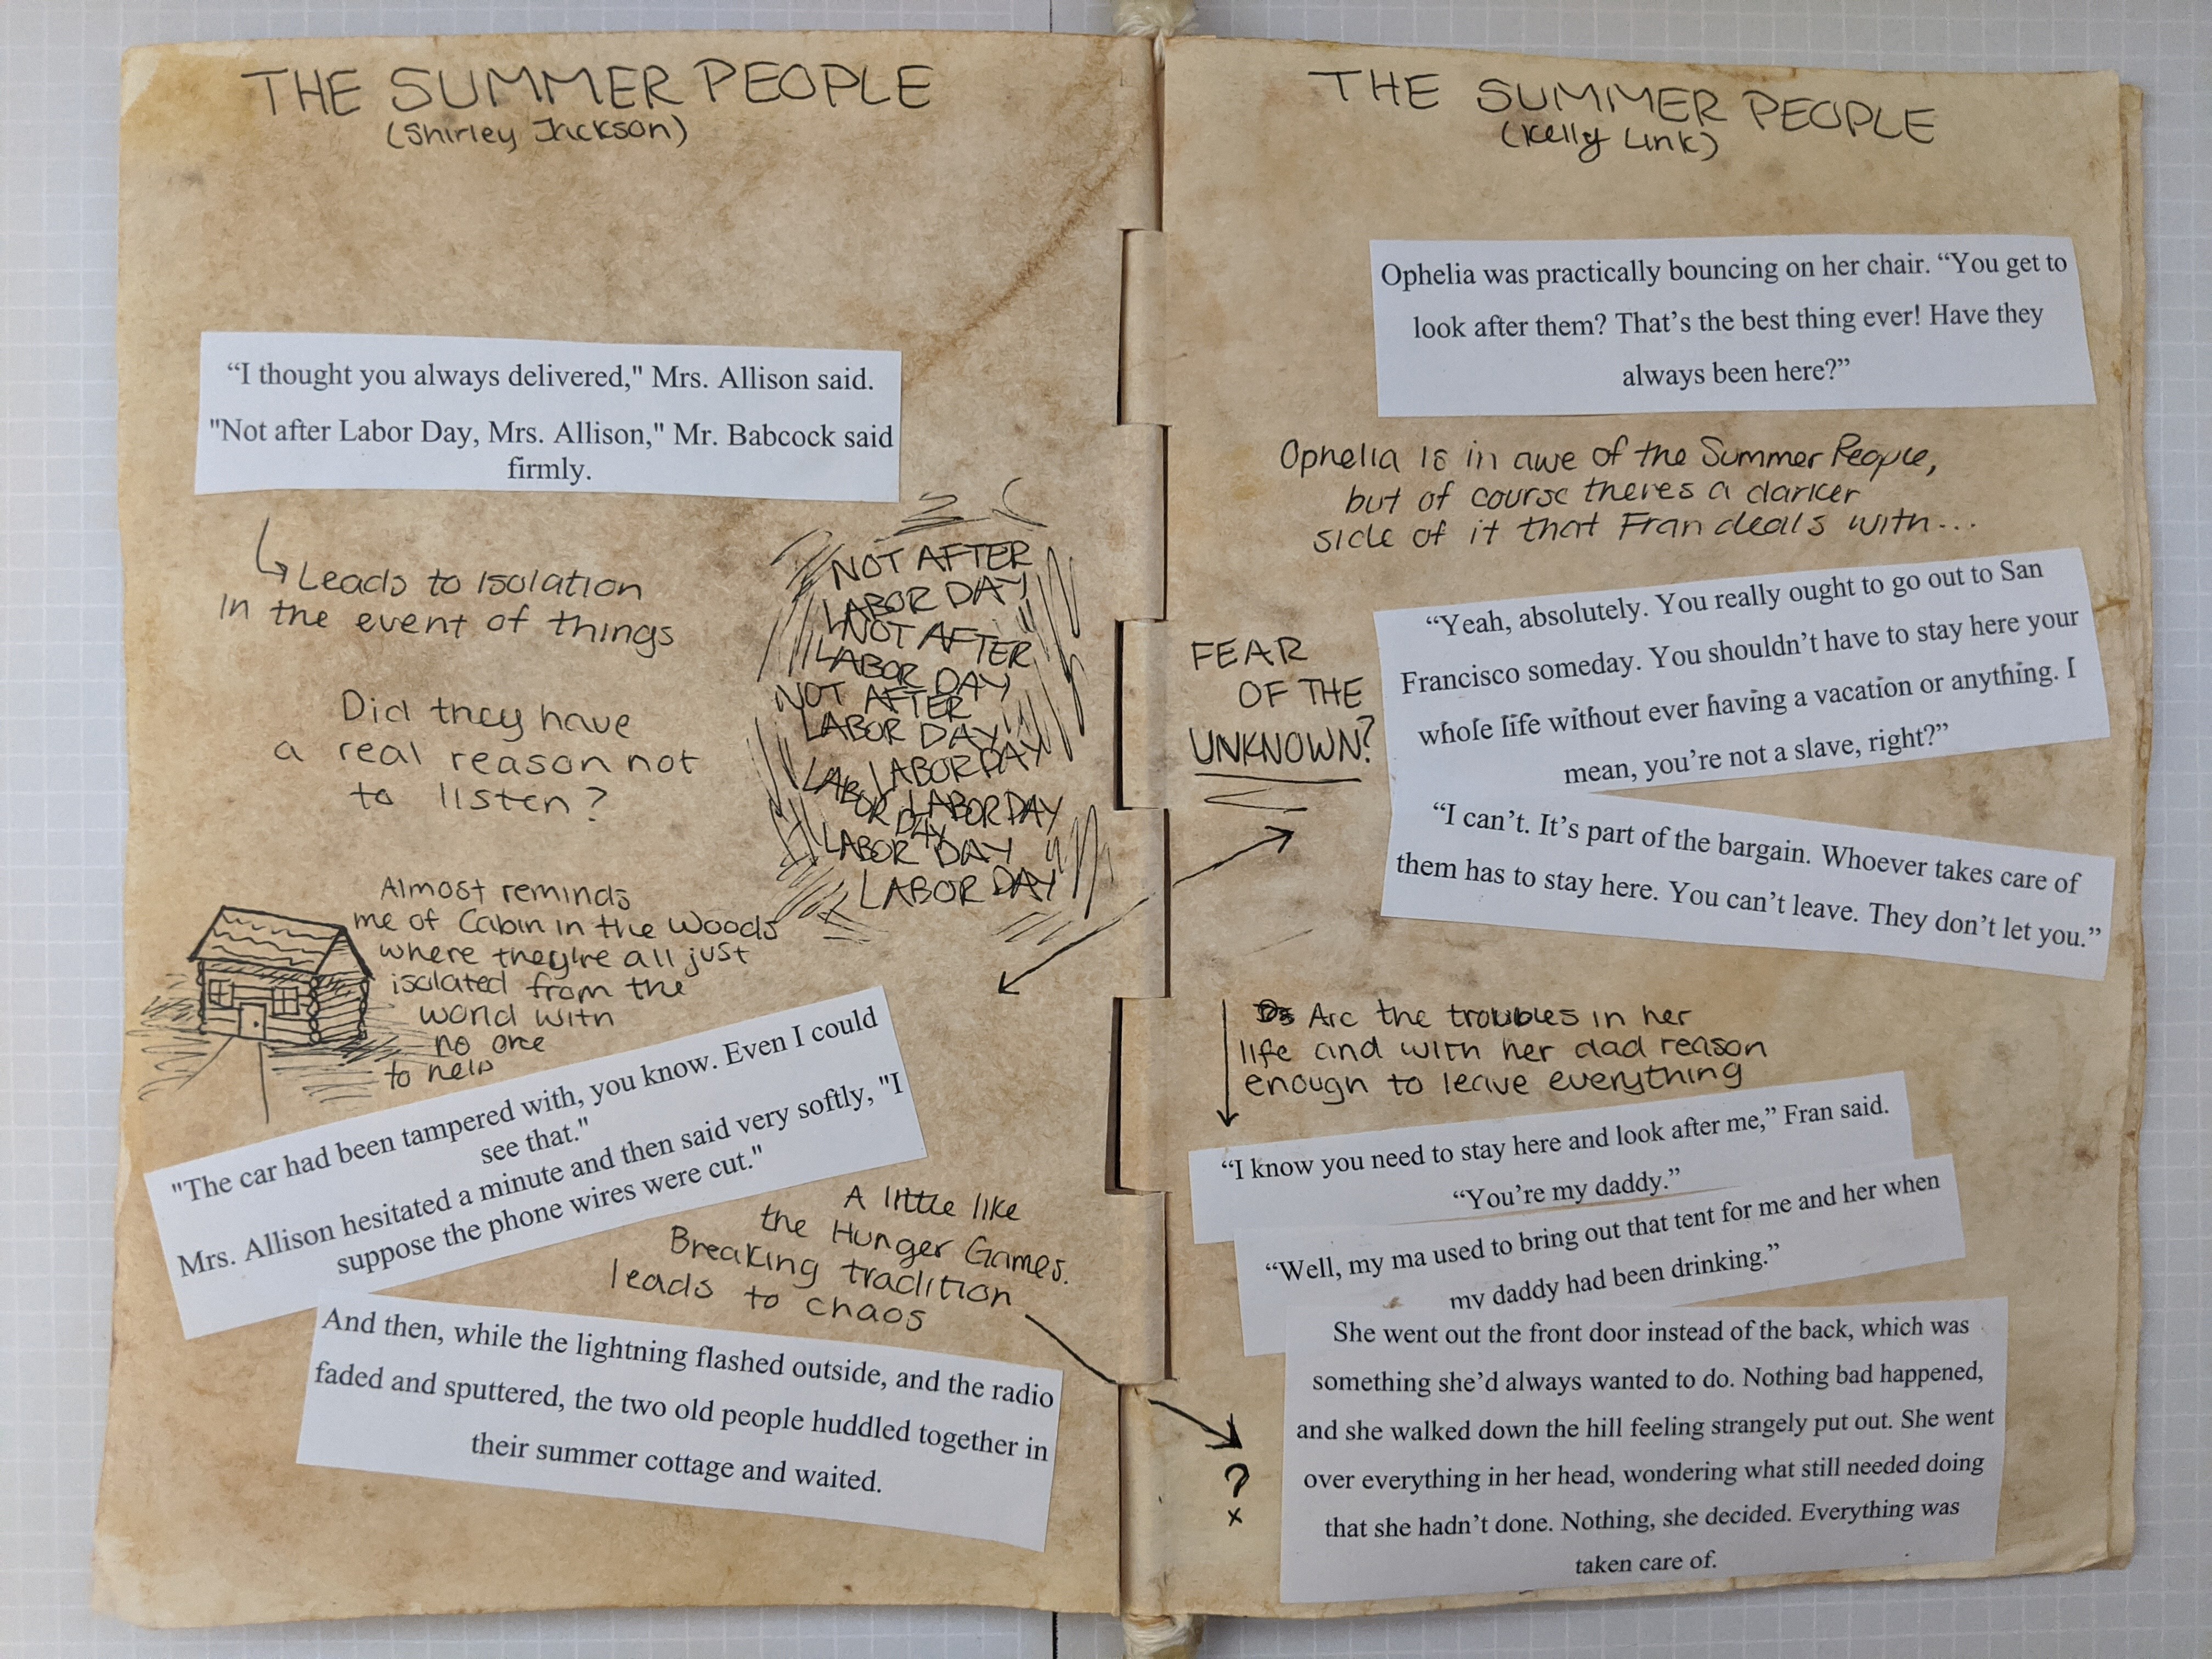 THE SUMMER PEOPLE
(Shirley Jackson)
“I thought you always delivered," Mrs. Allison said.
"Not after Labor Day, Mrs. Allison," Mr. Babcock said
firmly.
Leads to Isolation
In the event of things
Did they have
a real reason not
to listen?
NOT AFTER
LABOR DAY
NOT AFTER
LABOR DAY
NOT AFTER
LABOR DAY
LABOR DAY
LABOR DAY
LABOR DAY
LABOR DAY
LABOR DAY
Almost reminds
me of Cabin in the Woods
where they're all just
isolated from the
world with
no one
to help
"The car had been tampered with, you know. Even I could
see that."
Mrs. Allison hesitated a minute and then said very softly, "I
suppose the phone wires were cut."
A little like
the Hunger Games.
Breaking tradition
leads to chaos
And then, while the lightning flashed outside, and the radio
faded and sputtered, the two old people huddled together in
their summer cottage and waited.
THE SUMMER PEOPLE
(Kelly Link)
Ophelia was practically bouncing on her chair. “You get to
look after them? That’s the best thing ever! Have they
always been here?”
Ophelia is in awe of the Summer People,
but of course theres a darker
side of it that Fran deals with...
FEAR
OF THE
UNKNOWN?
“Yeah, absolutely. You really ought to go out to San
Francisco someday. You shouldn’t have to stay here your
whole life without ever having a vacation or anything. I
mean, you’re not a slave, right?”
“I can’t. It’s part of the bargain. Whoever takes care of
them has to stay here. You can’t leave. They don’t let you.”
Are the troubles in her
life and with her dad reason
enough to leave everything
“I know you need to stay here and look after me,” Fran said.
“You’re my daddy.”
“Well, my ma used to bring out that tent for me and her when
my daddy had been drinking.”
She went out the front door instead of the back, which was
something she’d always wanted to do. Nothing bad happened,
and she walked down the hill feeling strangely put out. She went
over everything in her head, wondering what still needed doing
that she hadn’t done. Nothing, she decided. Everything was
taken care of.
?